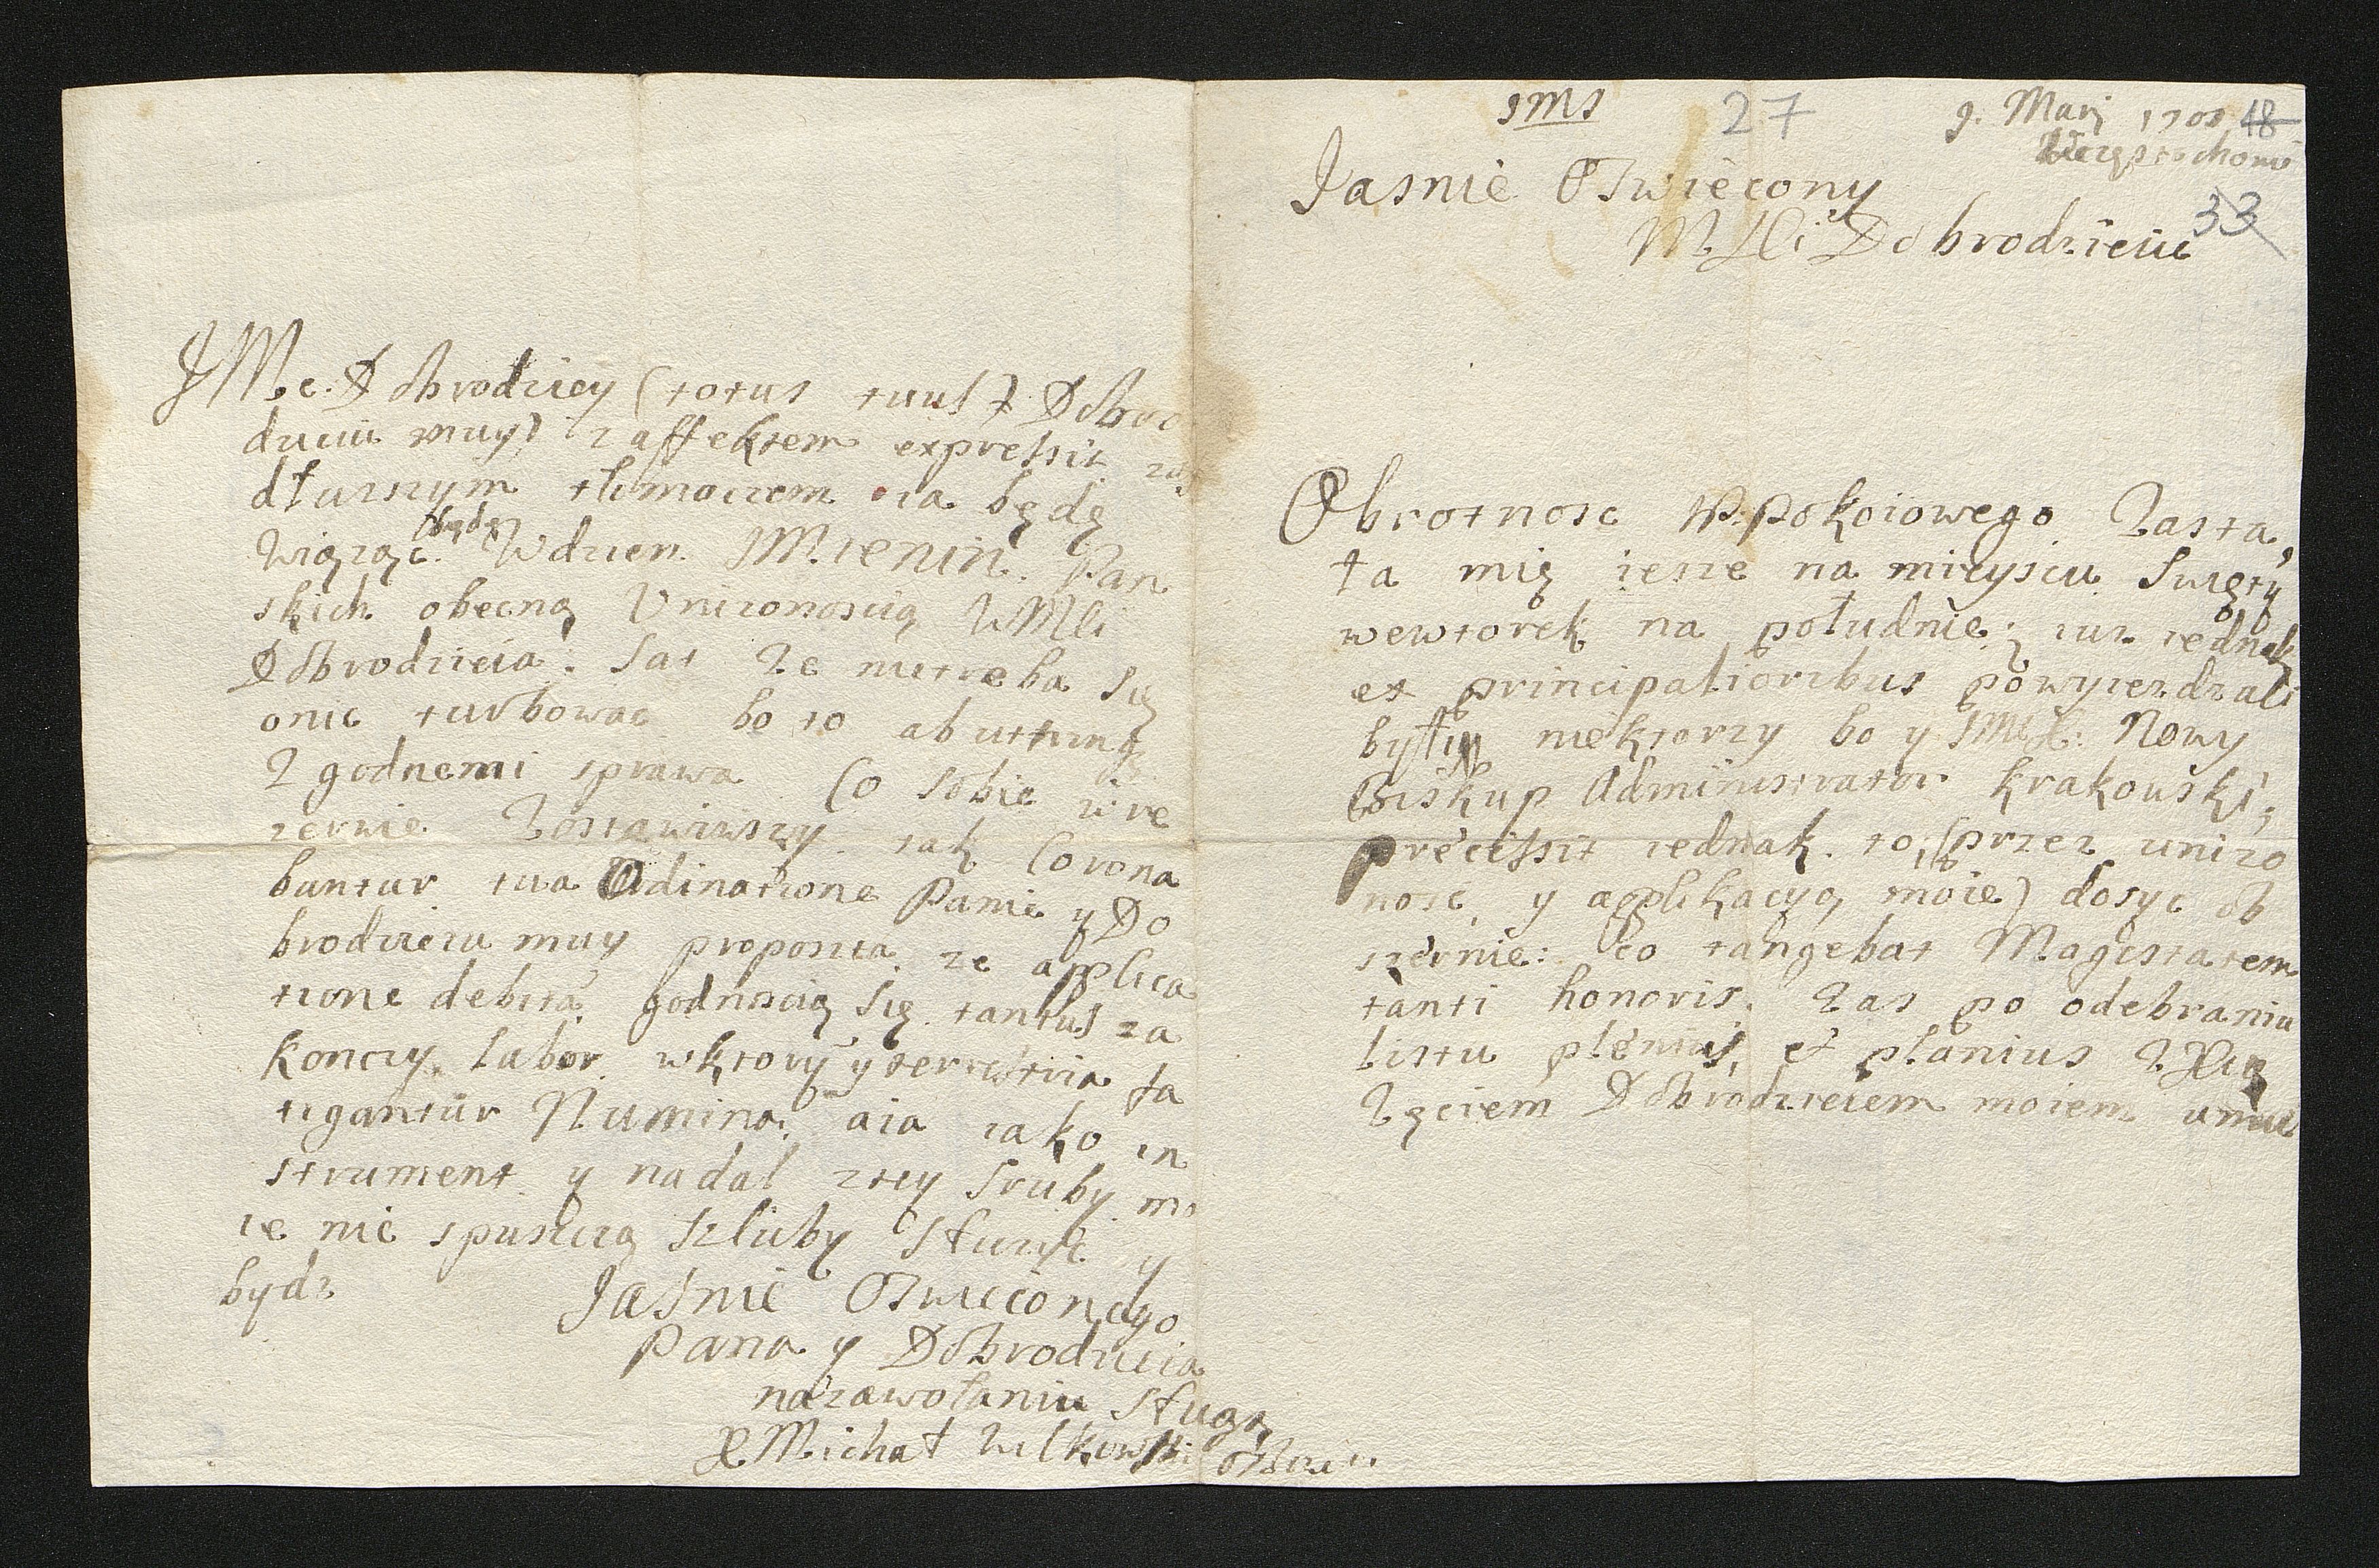 JMS 27 9. Marj 1701 48
33
Jasnie Oswiecony
M. Dobrodzieiu
Obrotnosc P. Pokoiowego Zasta
ła mię iesze na mieyscu Swięty
wewtorek na południe; iuz iednak
ex principalioribus powyiezdzali
byli niektorzy bo y JMcX. Nowy
Biskup Administrator krakowski;
precissit iednak to (przez unizo
nosc y applikacyą moię) dosyc ob
szernie: co tangebat Magistatem
tanti honoris. Zas po odebraniu
listu plenius, et planius ZXią
Zęciem Dobrodzieiem moiem
JMc. Dobrodziey (totus tuus) Dobro
dzieiu muy) z affektem expressit
dłuzszym tłomaczem ia będę
Wiąząc będę Wdzien JMienin Pan
skich obecną Unizonoscią WMCi
Dobrodzieia. Sat Ze nietrzeba Się
onie turbowac bo to ab
Zgodnemi sprawa Co Sobie wre
zerwie Zostawiwszy tak Corona
buntur tua Odinatione Panie y Do
brodzieiu muy ze applica
tione debita godnoscią Się tantus za
konczy labor wktory y terrestria fa
tigantur Numina. aia iako in
strument y nadal ztey Sruby mo
ie nie spuszczą Szluby Słuzyc y
bydz
Jasnie Oswieconego
Pana y Dobrodzieia
nazawołaniu Sługą
X Michał Wilkowski